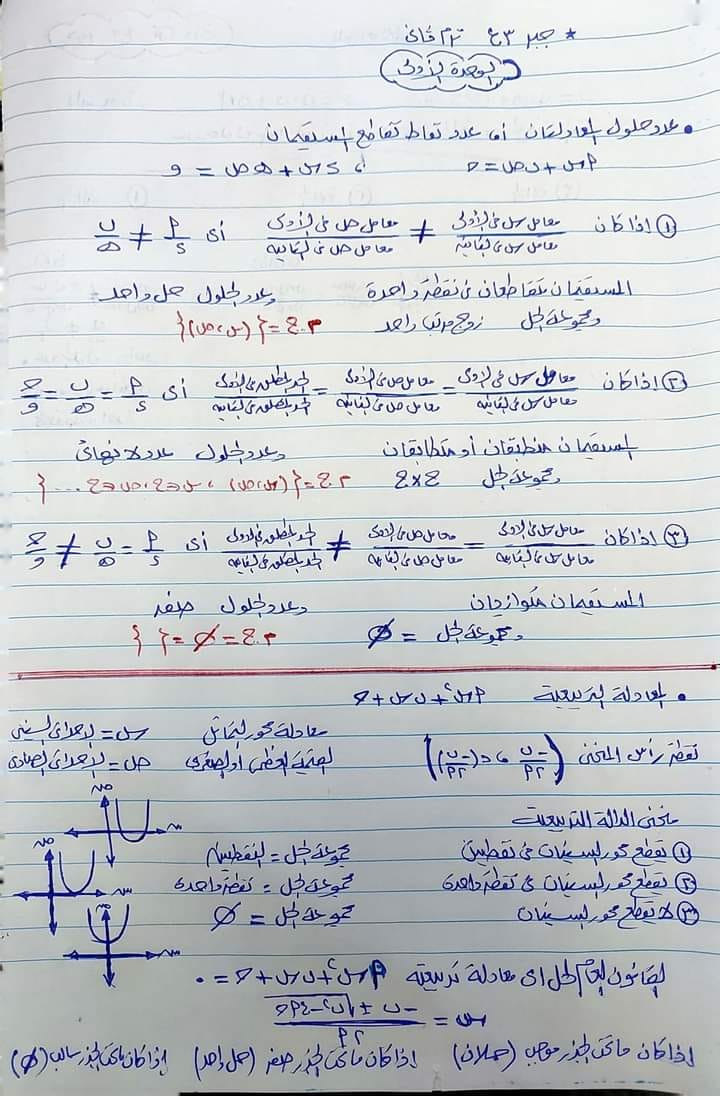 * جبر ٣ع ترم ثانى
الوحدة الأولى
• عدد حلول المعادلتان أى عدد نقاط تقاطع المستقيمان
أس + ب ص = حـ ، ء س + هـ ص = و
① اذا كان معامل س فى الأولى / معامل س فى الثانية ≠ معامل ص فى الأولى / معامل ص فى الثانية أى أ/ء ≠ ب/هـ
المستقيمان يتقاطعان فى نقطة واحدة وعدد الحلول حل واحد
ومجموعة الحل زوج مرتب واحد م.ح = {(س،ص)}
② اذا كان معامل س فى الأولى / معامل س فى الثانية = معامل ص فى الأولى / معامل ص فى الثانية = الحد المطلق فى الأولى / الحد المطلق فى الثانية أى أ/ء = ب/هـ = حـ/و
المستقيمان منطبقان أو متطابقان وعدد الحلول عدد لا نهائى
ومجموعة الحل ح×ح م.ح = {(س،ص) ، س∈ح،ص∈ح ... }
③ اذا كان معامل س فى الأولى / معامل س فى الثانية = معامل ص فى الأولى / معامل ص فى الثانية ≠ الحد المطلق فى الأولى / الحد المطلق فى الثانية أى أ/ء = ب/هـ ≠ حـ/و
المستقيمان متوازيان وعدد الحلول صفر
ومجموعة الحل = ∅ م.ح = ∅ = { }
• المعادلة التربيعية أس² + ب س + حـ
معادلة محور التماثل س = الإحداثى السينى
نقطة رأس المنحنى (-ب/٢أ ، د(-ب/٢أ)) القيمة العظمى أو الصغرى ص = الإحداثى الصادى
منحنى الدالة التربيعية
① تقطع محور السينات فى نقطتين مجموعة الحل = النقطتين
② تقطع محور السينات فى نقطة واحدة مجموعة الحل = نقطة واحدة
③ لا يقطع محور السينات مجموعة الحل = ∅
ص
س
ص
س
ص
س
القانون العام لحل اى معادلة تربيعية أس² + ب س + حـ = ٠
س = (-ب ± √(ب² - ٤أحـ)) / ٢أ
اذا كان ما تحت الجذر موجب (حلان) اذا كان ما تحت الجذر صفر (حل واحد) إذا كان ما تحت الجذر سالب (∅)